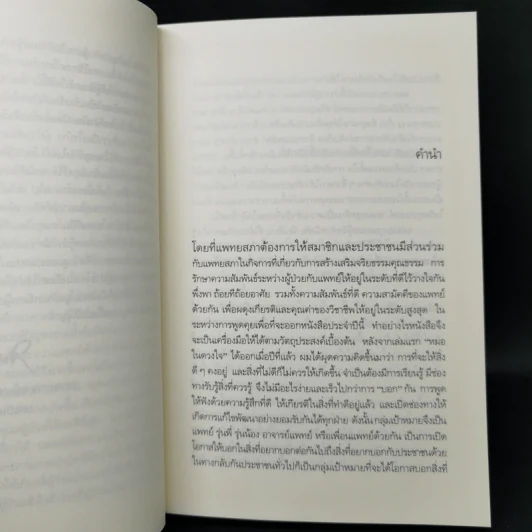 คำนำ
โดยที่แพทยสภาต้องการให้สมาชิกและประชาชนมีส่วนร่วม
กับแพทยสภาในกิจการที่เกี่ยวกับการสร้างเสริมจริยธรรมคุณธรรม การ
รักษาความสัมพันธ์ระหว่างผู้ป่วยกับแพทย์ให้อยู่ในระดับที่ดีไว้วางใจกัน
พึ่งพา ถ้อยทีถ้อยอาศัย รวมทั้งความสัมพันธ์ที่ดี ความสามัคคีของแพทย์
ด้วยกัน เพื่อผดุงเกียรติและคุณค่าของวิชาชีพให้อยู่ในระดับสูงสุด ใน
ระหว่างการพูดคุยเพื่อที่จะออกหนังสือประจำปีนี้ ทำอย่างไรหนังสือจึง
จะเป็นเครื่องมือให้ได้ตามวัตถุประสงค์เบื้องต้น หลังจากเล่มแรก “หมอ
ในดวงใจ” ได้ออกเมื่อปีที่แล้ว ผมได้ผุดความคิดขึ้นมาว่า การที่จะให้สิ่ง
ดี ๆ คงอยู่ และสิ่งที่ไม่ดีก็ไม่ควรให้เกิดขึ้น จำเป็นต้องมีการเรียนรู้ มีช่อง
ทางรับรู้สิ่งที่ควรรู้ จึงไม่มีอะไรง่ายและเร็วไปกว่าการ “บอก” กัน การพูด
ให้ฟังด้วยความรู้สึกที่ดี ให้เกียรติในสิ่งที่ทำดีอยู่แล้ว และเปิดช่องทางให้
เกิดการแก้ไขพัฒนาอย่างยอมรับกันได้ทุกฝ่าย ดังนั้น กลุ่มเป้าหมายจึงเป็น
แพทย์ รุ่นพี่ รุ่นน้อง อาจารย์แพทย์ หรือเพื่อนแพทย์ด้วยกัน เป็นการเปิด
โอกาสให้บอกในสิ่งที่อยากบอกต่อกันไปถึงสิ่งที่อยากบอกกับประชาชนด้วย
ในทางกลับกันประชาชนทั่วไปก็เป็นกลุ่มเป้าหมายที่จะได้โอกาสบอกสิ่งที่